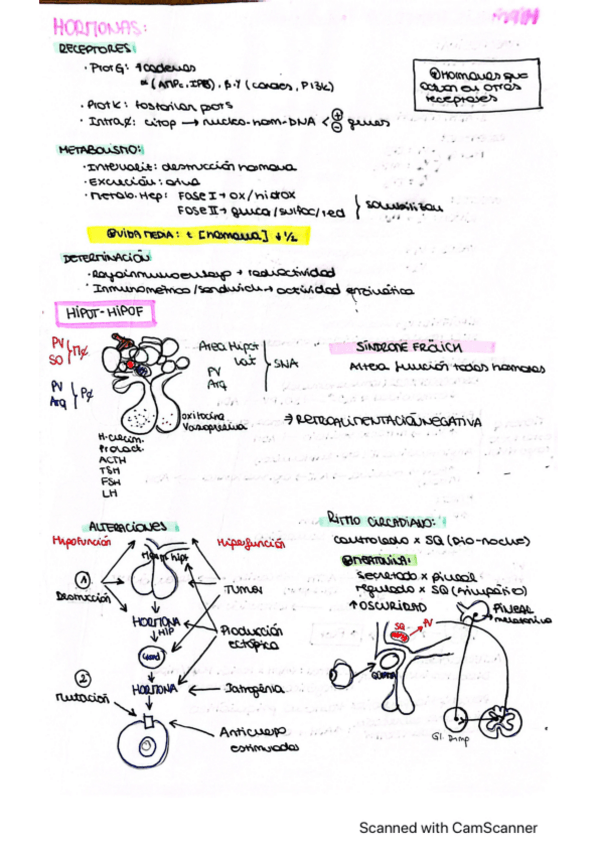 HORMONAS:
RECEPTORES:
· Prot G: 7 cadenas
α (AMPc, IP3), β·γ (canales, PI3K)
· Prot K: fosforilan prots
· Intra¢: citop → núcleo-horm-DNA < ⊕ ⊖ genes
hormonas que
actúan en otros
receptores
METABOLISMO:
· Internaliz: destrucción hormona
· Excreción: orina
· Metab. Hep: FASE I → ox/hidrox
FASE II → gluca/sulfac/red } solubilizan
VIDA MEDIA: t [hormona] ↓ 1/2
DETERMINACIÓN
· Radioinmunoensayo → radiactividad
· Inmunometrica/sandwich → actividad enzimática
HIPOT-HIPOF
PV
SO } M¢
PV
Arq } P¢
Area Hipot
Lat
PV
Arq
} SNA
SÍNDROME FRÖLICH
Altera función todas hormonas
oxitocina
Vasopresina
⇒ RETROALIMENTACIÓN NEGATIVA
H. crecim.
Prolact.
ACTH
TSH
FSH
LH
ALTERACIONES
Hipofunción
Hiperfunción
① Destrucción
HORMONA
HIP
Gland
② Mutación
HORMONA
Tumor
Producción
ectópica
Iatrogénia
Anticuerpo
estimulador
RITMO CIRCADIANO:
controlado x SQ (Dia-noche)
MELATONINA:
secretado x pineal
regulado x SQ (simpático)
↑ OSCURIDAD
SQ
PV
PINEAL
→ melatonina
QUIASMA
Gl. Simp
Scanned with CamScanner